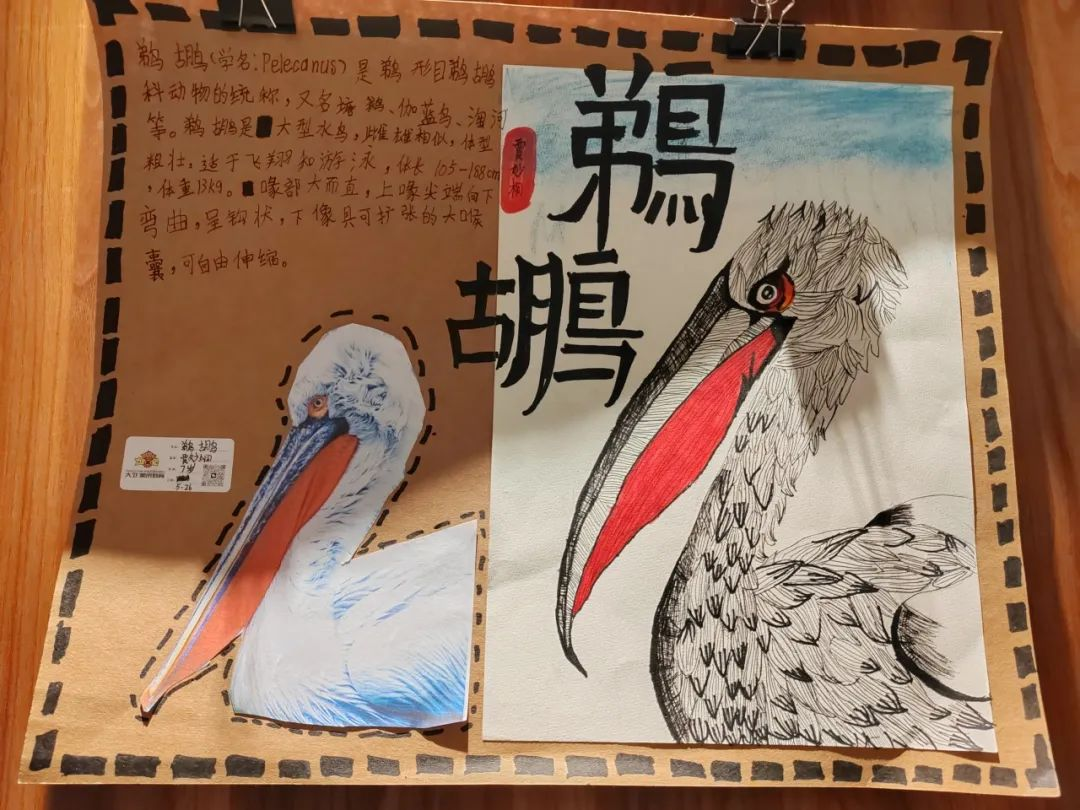 鹈鹕(学名:Pelecanus)是鹈形目鹈鹕
科动物的统称,又名塘鹅、伽蓝鸟、淘河
等。鹈鹕是大型水鸟,雌雄相似,体型
粗壮,适于飞翔和游泳,体长105-188cm
,体重13kg。喙部大而直,上喙尖端向下
弯曲,呈钩状,下像具可扩张的大喉
囊,可自由伸缩。
鹈
鹕
鹈鹕
7岁
5.26